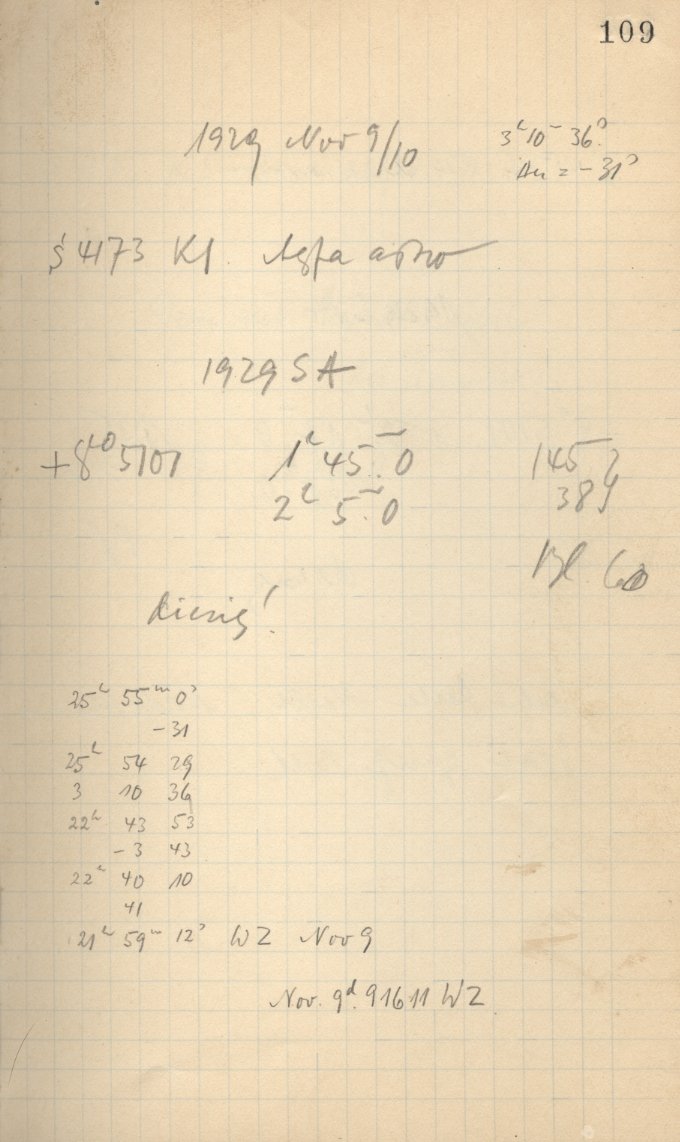 109
1929 Nov 9/10
3h 10m 36s
Δu = -31s
S 4173 Kl. Agfa astro
1929 SA
+8° 5101 1h 45m.0 145
2h 5m.0 389
Bl 60
diesig!
25h 55m 0s
-31
25h 54 29
3 10 36
22h 43 53
-3 43
22h 40 10
41
21h 59m 12s WZ Nov 9
Nov. 9d.91611 WZ